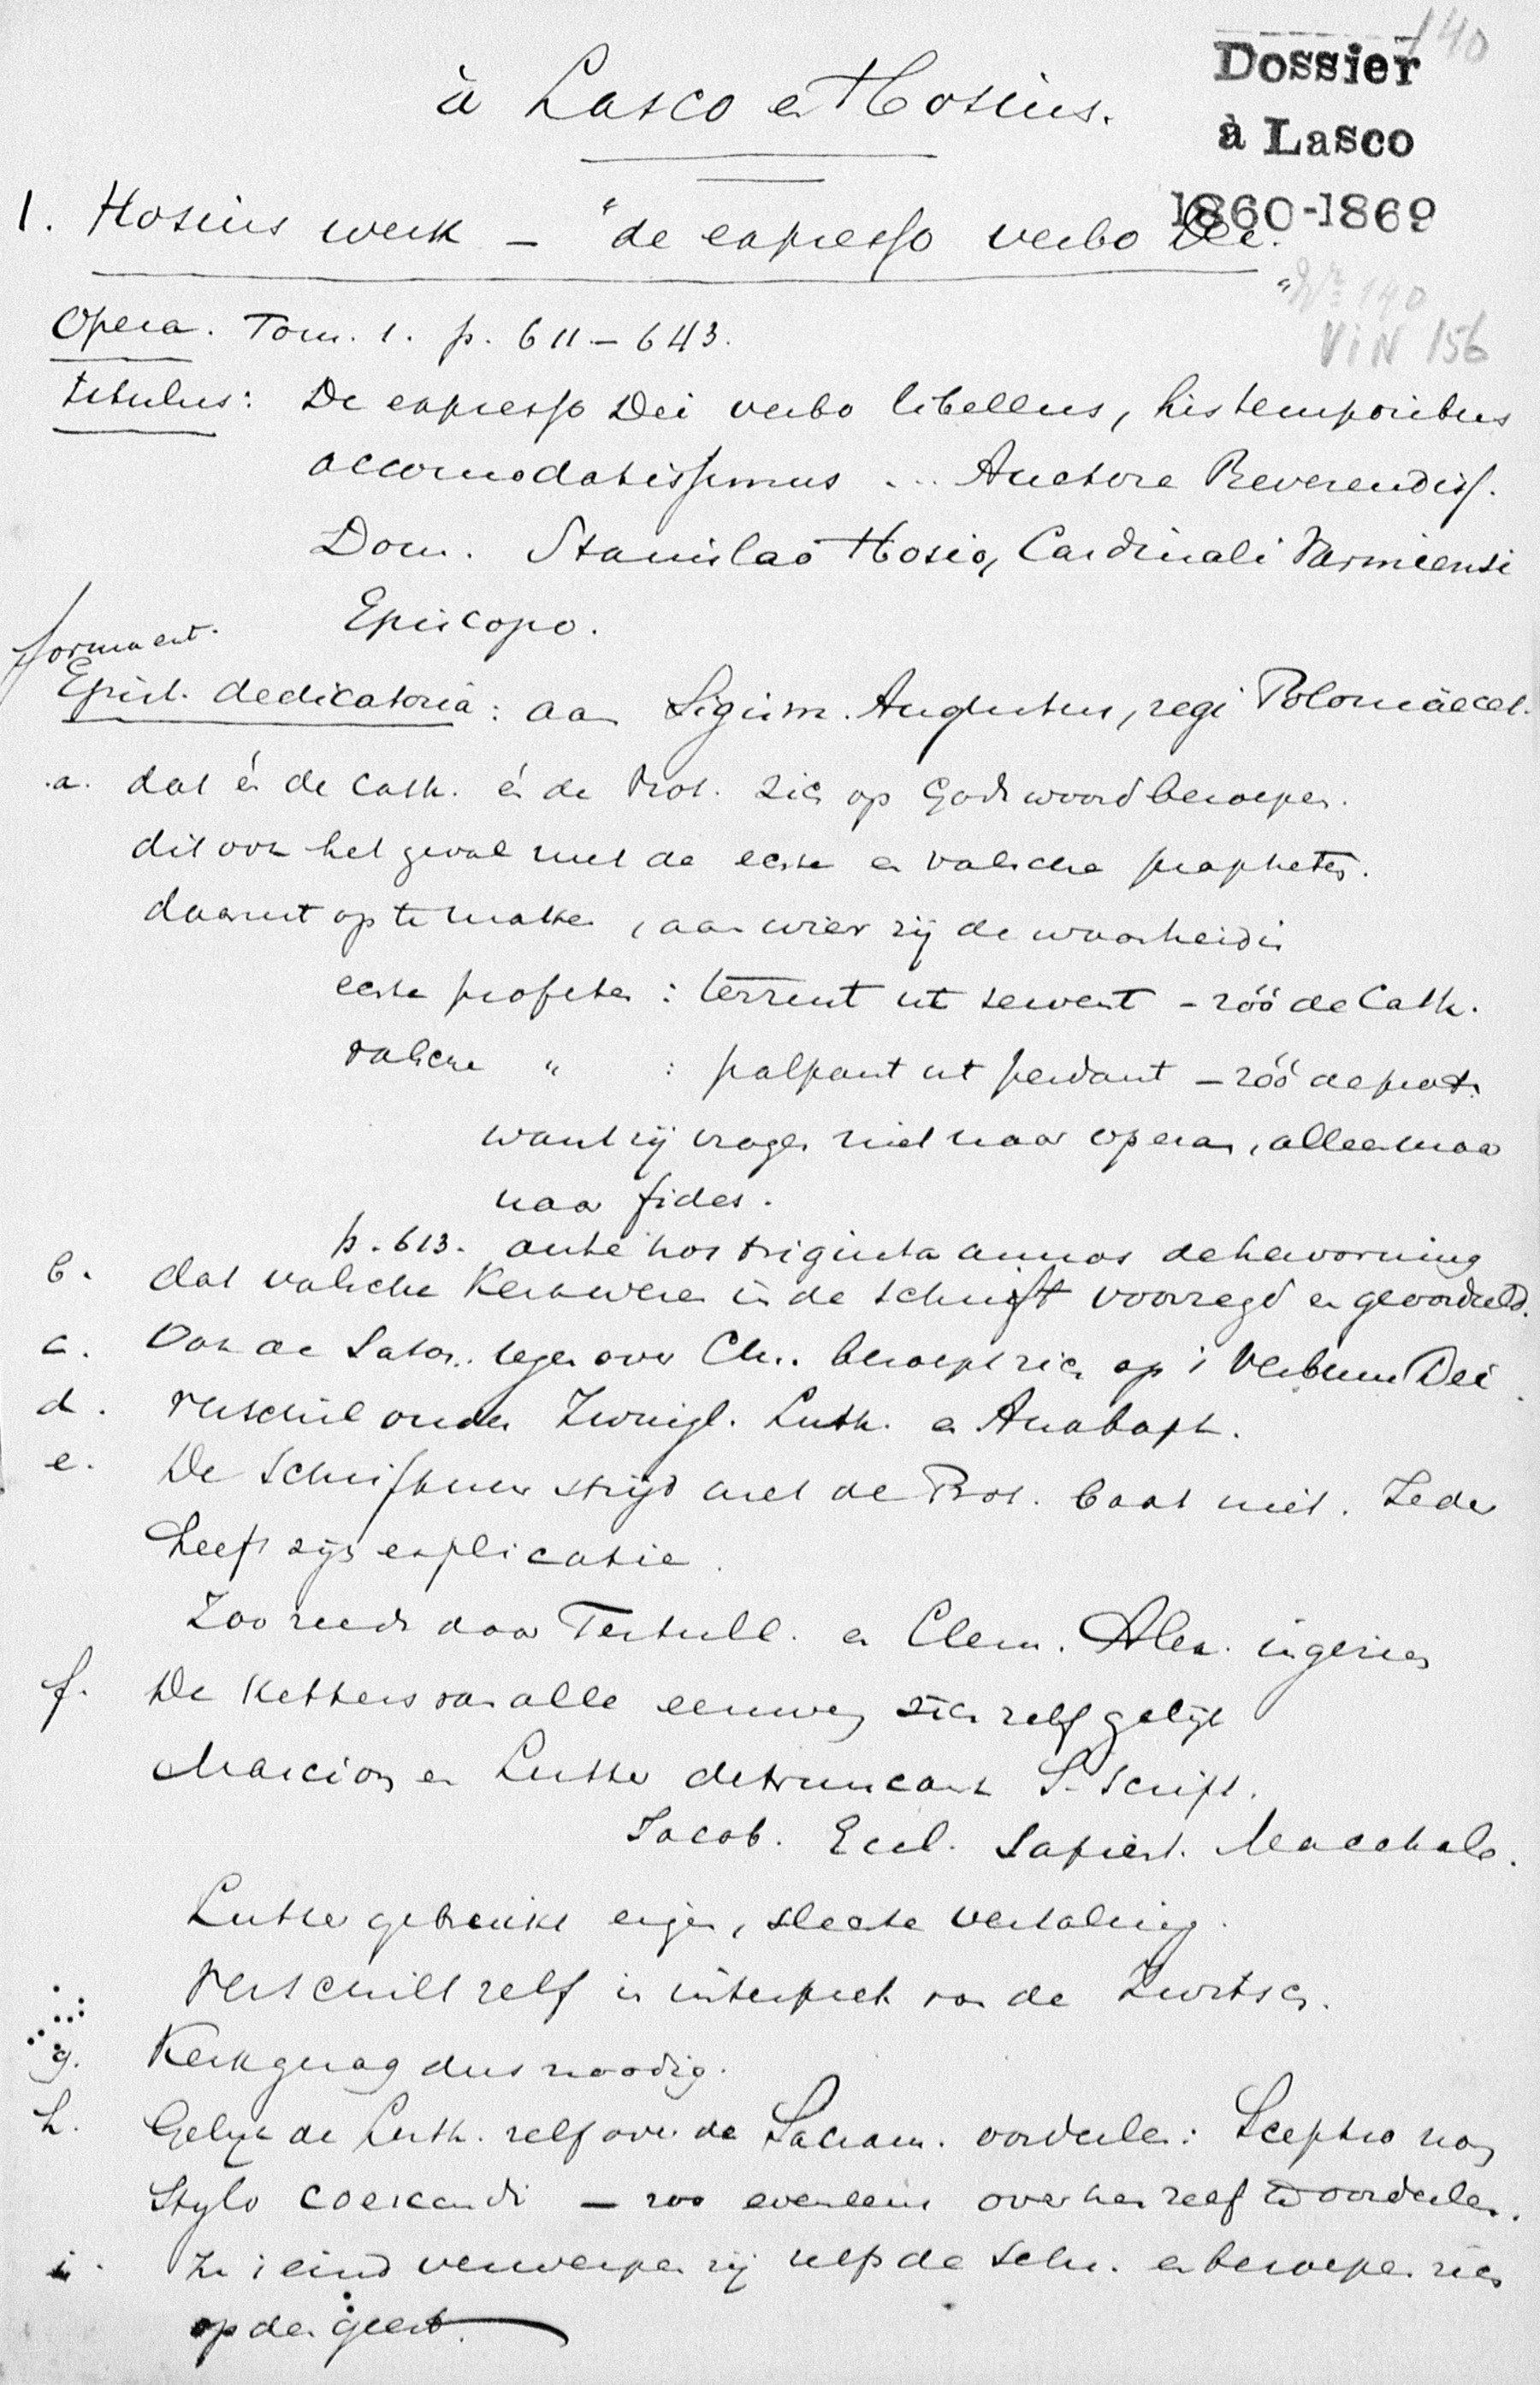 140
Dossier
à Lasco
1860-1869
Nr 140
VIN 156
à Lasco en Hosius.
1. Hosius werk – "de expresso verbo Dei."
Opera. Tom. 1. p. 611–643.
titulus: De expresso Dei verbo libellus, his temporibus
accomodatissimus ... Auctore Reverendiss.
Dom. Stanislao Hosio, Cardinali Varmiensi
Episcopo.
Epist. dedicatoria: aan Sigism. Augustus, regi Poloniae cet.
a. dat én de Cath. én de Prot. zich op Gods woord beroepen.
dit ook het geval met de echte en valsche propheten.
daaruit op te maken, aan wier zij de waarheid is
echte profeten: terrent ut servent – zóó de Cath.
valsche " : palpant ut perdant – zóó de prot.
want zij vragen niet naar opera, alleen maar
naar fides.
p. 613. ante hos triginta annos de hervorming
b. dat valsche Kerkweren in de schrift voorzegd en geoordeeld.
c. Ook de Satan tegenover Chr. beroept zich op 't Verbum Dei.
d. Verschil onder Zwingl. Luth. en Anabapt.
e. De Schriftuur strijd met de Prot. baat niet. Ieder
heeft zijn explicatie.
Zoo reeds door Tertull. en Clem. Alex. ingezien
f. De Ketters van alle eeuwen zich zelf gelijk
Marcion en Luther detruncant S. Script.
Jacob. Eccl. Sapient. Macchab.
Luther gebruikt eigen, slechte vertaling.
Verschilt zelf in interpret van de Zwitsers.
g. Kerkgezag dus noodig.
h. Gelijk de Luth. zelf over de Sacram. oordeelen: Sceptro non
Stylo coercendi – zoo eveneens over hen zelf te oordeelen.
i. In 't eind verwerpen zij zelfs de Schr. en beroepen zich
op den geest.